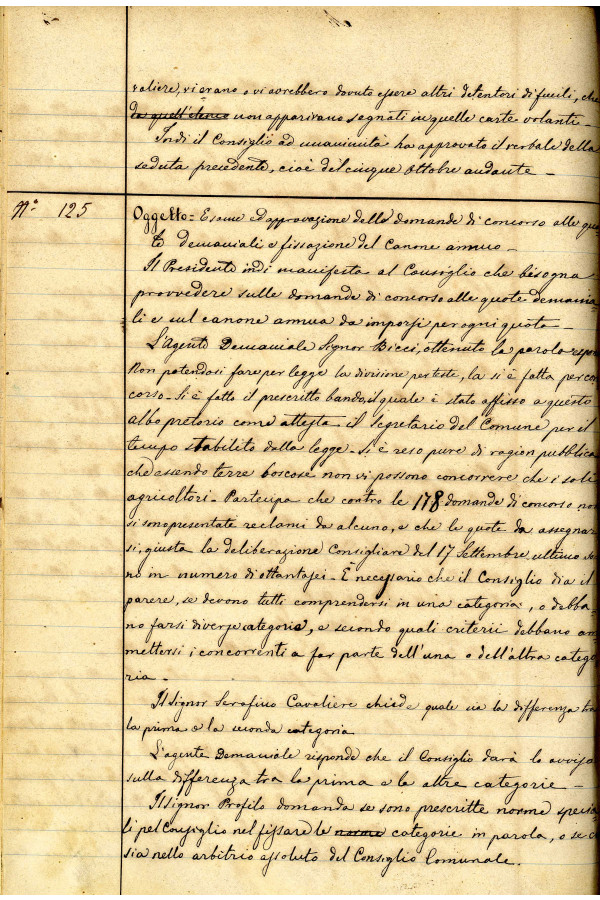 valiere, vi erano o vi avrebbero dovuto essere altri detentori di fucili, che
da quell'elenco non apparivano segnati in quelle carte volanti -
Indi il Consiglio ad unanimità ha approvato il verbale della
seduta precedente, cioè del cinque ottobre andante -
N° 125
Oggetto = Esame ed approvazione delle domande di concorso alle quo-
te demaniali e fissazione del Canone annuo -
Il Presidente indi manifesta al Consiglio che bisogna
provvedere sulle domande di concorso alle quote demania-
li e sul canone annuo da imporsi per ogni quota -
L'Agente Demaniale Signor Bicci, ottenuta la parola
Non potendosi fare per legge la divisione per teste, la si è fatta per con
corso - Si è fatto il prescritto bando, il quale è stato affisso a questo
albo pretorio come attesta il Segretario del Comune per il
tempo stabilito dalla legge - Si è reso pure di ragion pubblica
che essendo terre boscose non vi possono concorrere che i soli
agricoltori - Partecipa che contro le 178 domande di concorso non
si sono presentati reclami da alcuno, e che le quote da assegnar
si, giusta la deliberazione Consigliare del 17 Settembre ultimo so
no in numero di ottantasei - È necessario che il Consiglio dia il
parere, se devono tutti comprendersi in una categoria, o debba-
no farsi diverse categorie, e secondo quali criterii debbano am
mettersi i concorrenti a far parte dell'una o dell'altra catego
ria -
Il Signor Serafino Cavaliere chiede quale sia la differenza tra
la prima e la seconda categoria
L'agente Demaniale risponde che il Consiglio darà lo avviso
sulla differenza tra la prima e la altre categorie -
Il Signor Profilo domanda se sono prescritte norme specia-
li pel Consiglio nel fissare le norme categorie in parola, o se c
sia nello arbitrio assoluto del Consiglio Comunale.